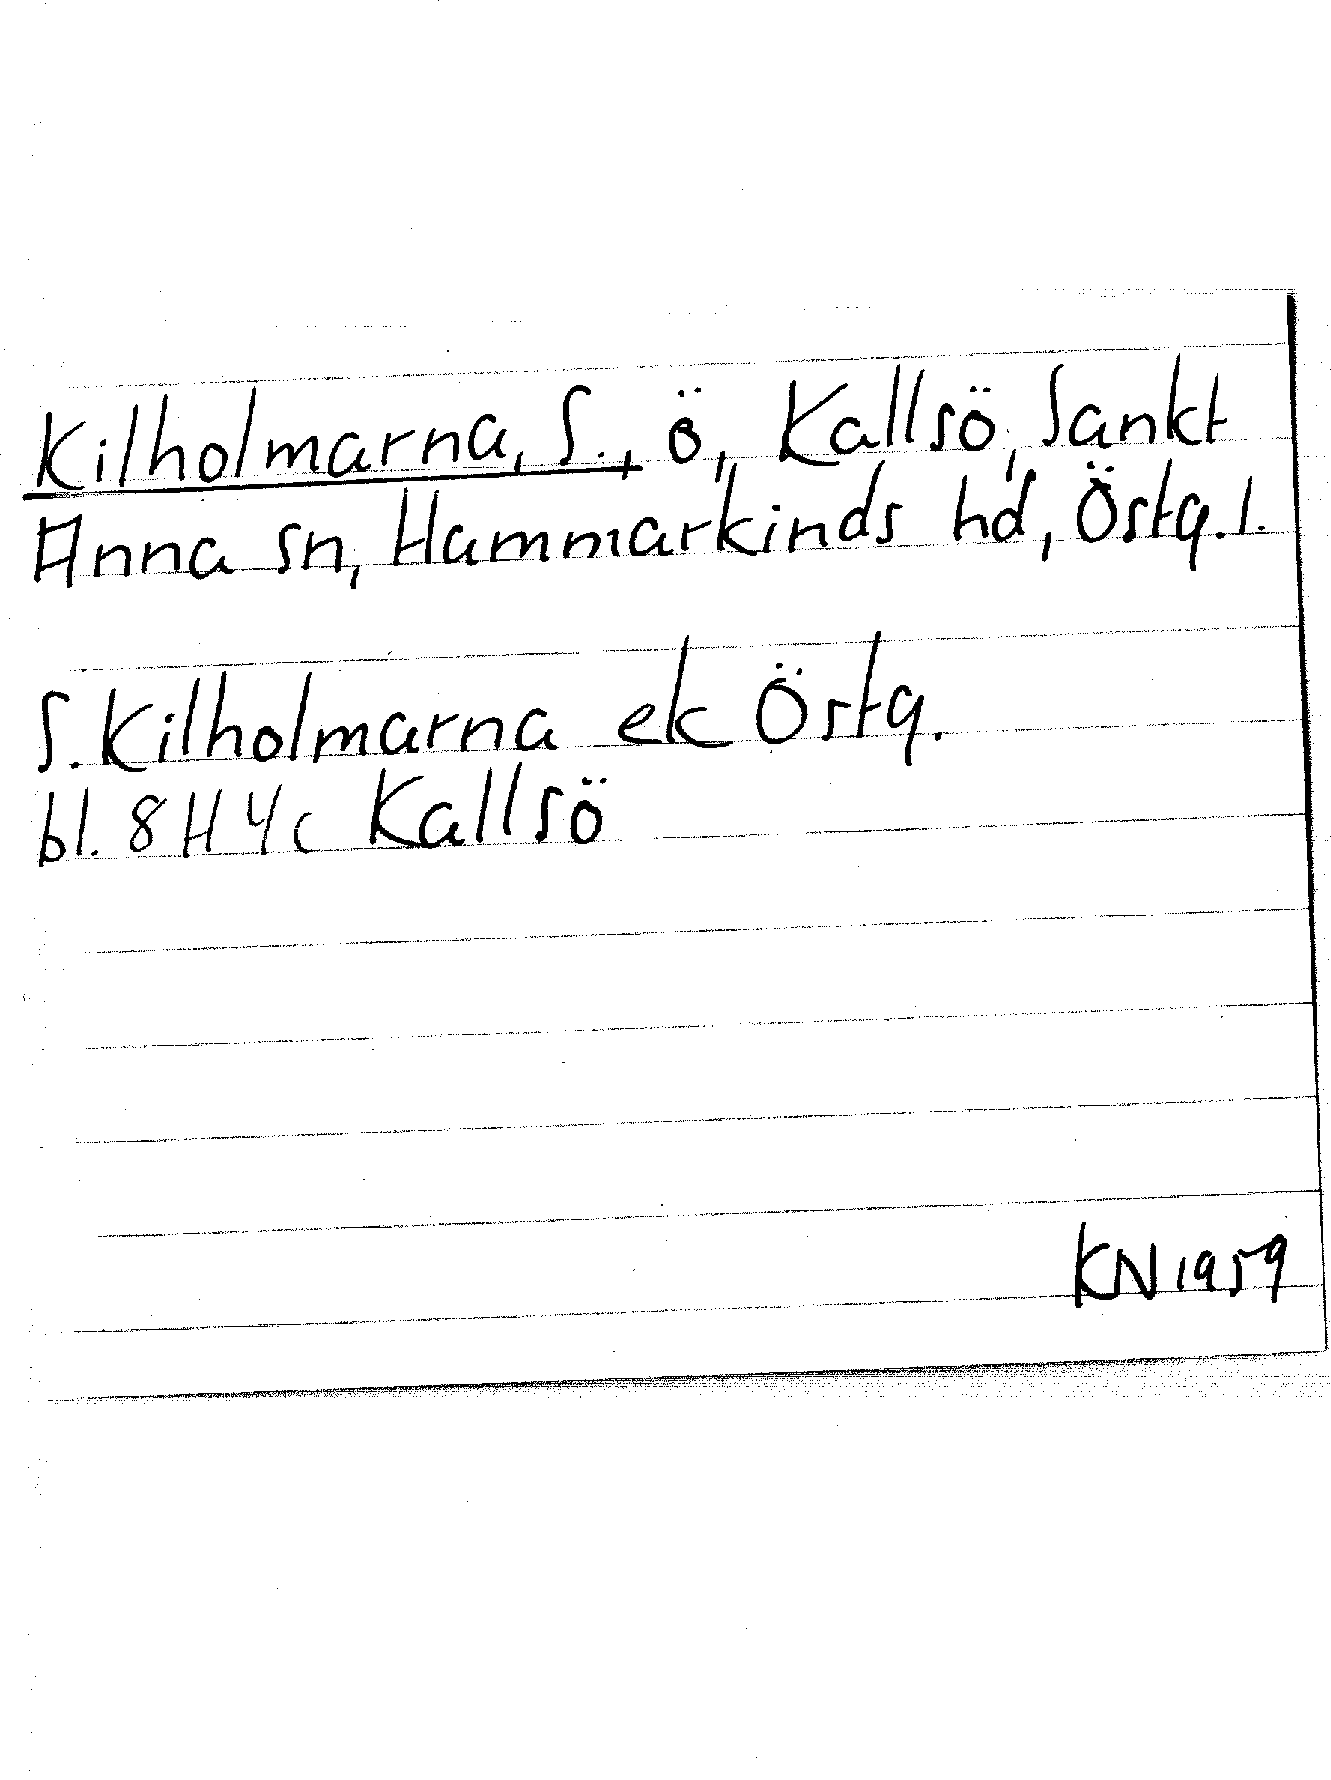 Kilholmarna, S., ö, Kallsö, Sankt
Anna sn, Hammarkinds hd, Östg. l.
S. Kilholmarna ek Östg.
bl. 8H 4c Kallsö
KN 1959